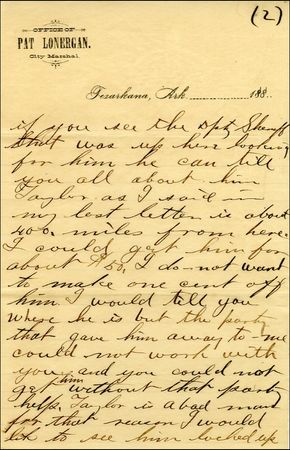 (2)
OFFICE OF
PAT LONERGAN.
City Marshal.
Texarkana, Ark. 188
if you see the Dpt Sheriff
that was up here looking
for him he can tell
you all about him
Taylor as I said in
my last letter is about
400 miles from here.
I could get him for
about $50, I do not want
to make one cent off
him I would tell you
where he is but the party
that gave him away to me
could not work with
you and you could not
get him without that party
help. Taylor is a bad man
for that reason I would
like to see him locked up